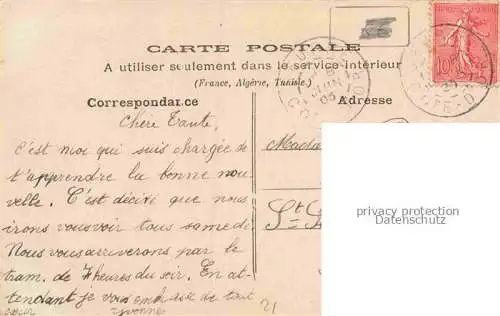 CARTE POSTALE
A utiliser seulement dans le service intérieur
(France, Algérie, Tunisie.)
Correspondance
Adresse
Chère Tante,
C'est moi qui suis chargée de
t'apprendre la bonne nou
velle. C'est décidé que nous
irons vous voir tous samedi
Nous vous arriverons par le
tram. de 7 heures du soir. En at-
tendant je vous embrasse de tout
cœur Yvonne
21
Mada
St
privacy protection
Datenschutz
10